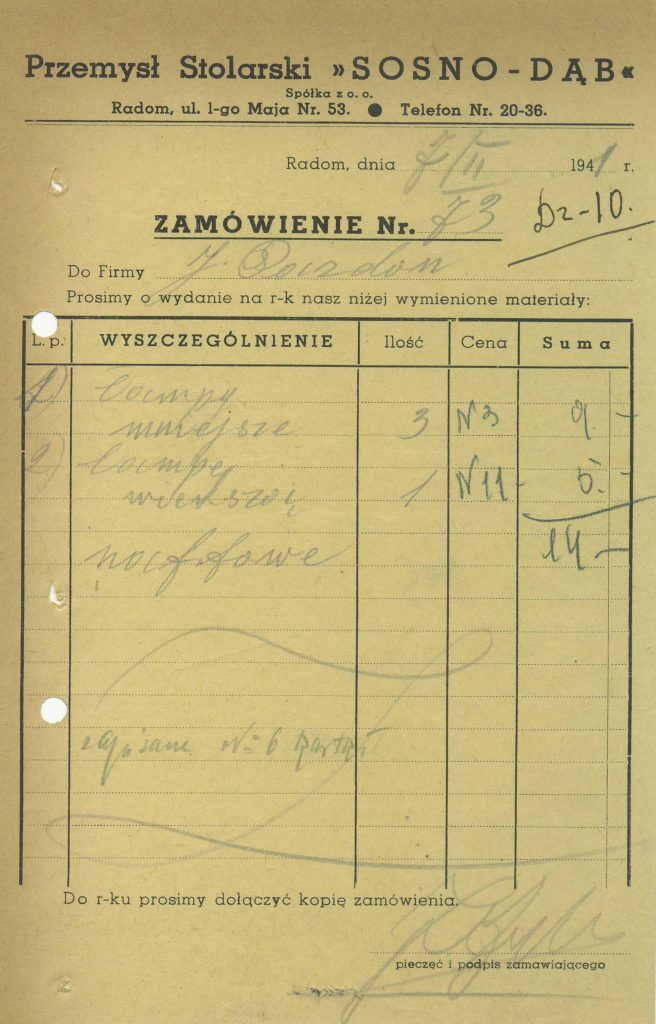 Przemysł Stolarski »SOSNO-DĄB«
Spółka z o. o.
Radom, ul. 1-go Maja Nr. 53. ● Telefon Nr. 20-36.
Radom, dnia 7/II 1941 r.
ZAMÓWIENIE Nr. 73 Dz-10.
Do Firmy J.
Prosimy o wydanie na r-k nasz niżej wymienione materiały:
L. p. WYSZCZEGÓLNIENIE Ilość Cena Suma
1) lampy
mniejsze 3 N3 9.-
2) lampę
większą 1 N11- 5.-
naftowe 14-
zapisane № 6
Do r-ku prosimy dołączyć kopię zamówienia.
pieczęć i podpis zamawiającego